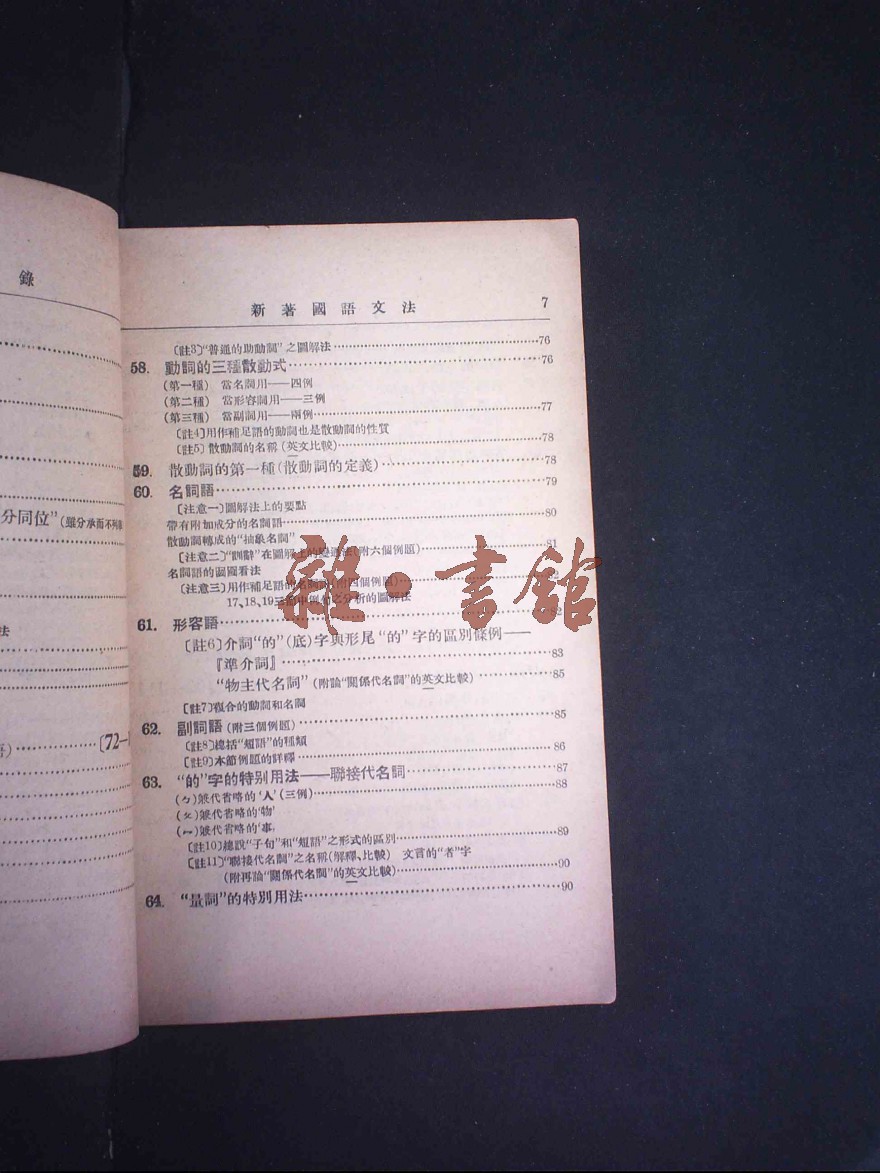 錄
分同位”(雖分承而不列
法
語)……[72—
新著國語文法 7
〔註3〕“普通的助動詞”之圖解法……76
58. 動詞的三種散動式……76
(第一種) 當名詞用——四例
(第二種) 當形容詞用——三例
(第三種) 當副詞用——兩例……77
〔註4〕用作補足語的動詞也是散動詞的性質
〔註5〕散動詞的名稱(英文比較)……78
59. 散動詞的第一種(散動詞的定義)……78
60. 名詞語……79
〔注意一〕圖解法上的要點
帶有附加成分的名詞語……80
散動詞轉成的“抽象名詞”
〔注意二〕“訓辭”在圖解上的變通法(附六個例題)……81
名詞語的圖看法
〔注意三〕用作補足語的名詞語(附四個例題)……82
17、18、19三節中例句之分析的圖解法
61. 形容語……82
〔註6〕介詞“的”(底)字與形尾“的”字的區別條例——
『準介詞』……83
“物主代名詞”(附論“關係代名詞”的英文比較)……85
〔註7〕複合的動詞和名詞
62. 副詞語(附三個例題)……85
〔註8〕總括“短語”的種類
〔註9〕本節例題的詳釋……86
63. “的”字的特別用法——聯接代名詞……87
(ㄅ)兼代省略的‘人’(三例)……88
(ㄆ)兼代省略的‘物’
(ㄇ)兼代省略的‘事’
〔註10〕總說“子句”和“短語”之形式的區別……89
〔註11〕“聯接代名詞”之名稱(解釋、比較) 文言的“者”字
(附再論“關係代名詞”的英文比較)……90
64. “量詞”的特別用法……90
雜·書館